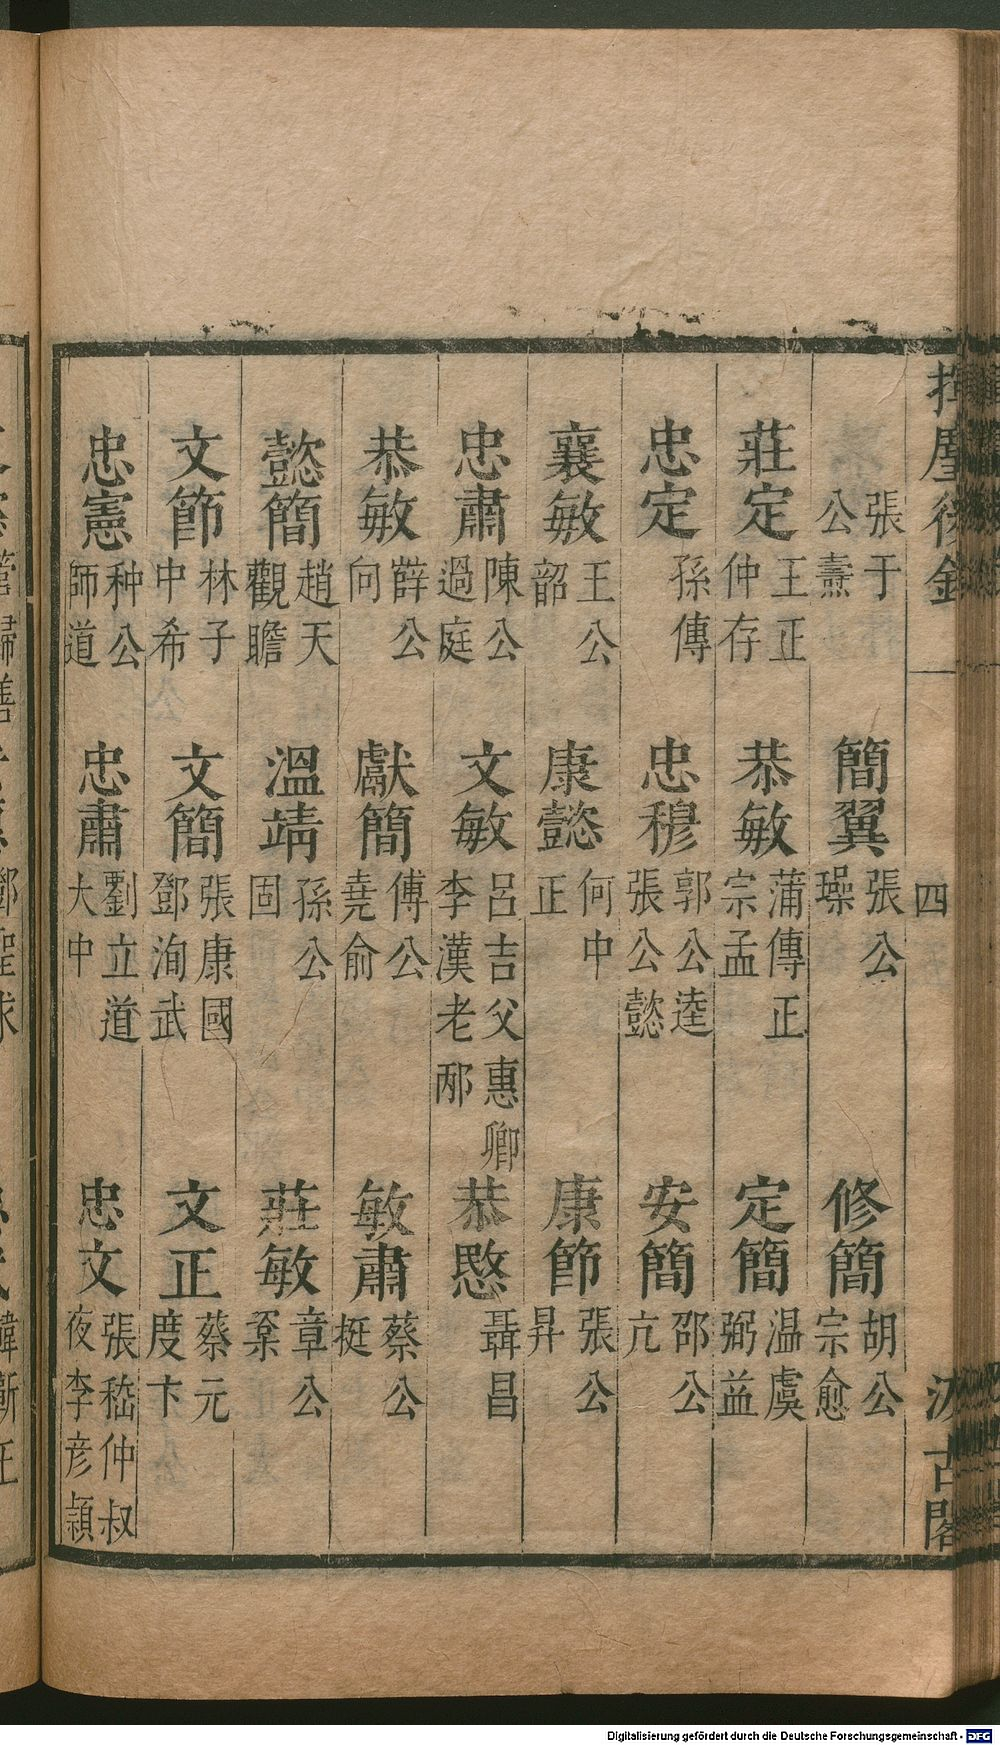 揮麈後錄
四
汲古閣
張于公燾 簡翼張公璪 修簡胡公宗愈
莊定王正仲存 恭敏蒲傳正宗孟 定簡温虞弼益
忠定孫傳 忠穆郭公逵張公懿 安簡邵公亢
襄敏王公韶 康懿何中正 康節張公昇
忠肅陳公過庭 文敏呂吉父惠卿李漢老邴 恭愍聶昌
恭敏薛公向 獻簡傅公堯俞 敏肅蔡公挺
懿簡趙天觀瞻 溫靖孫公固 莊敏章公楶
文節林子中希 文簡張康國鄧洵武 文正蔡元度卞
忠憲种公師道 忠肅劉立道大中 忠文張嵇仲叔夜李彥穎
Digitalisierung gefördert durch die Deutsche Forschungsgemeinschaft - DFG